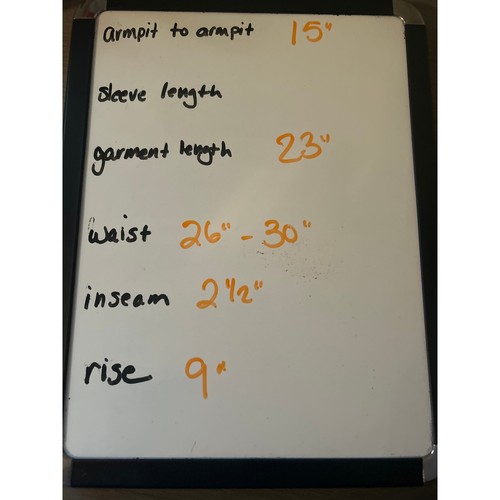 armpit to armpit 15"
sleeve length
garment length 23"
waist 26" - 30"
inseam 2 1/2"
rise 9"